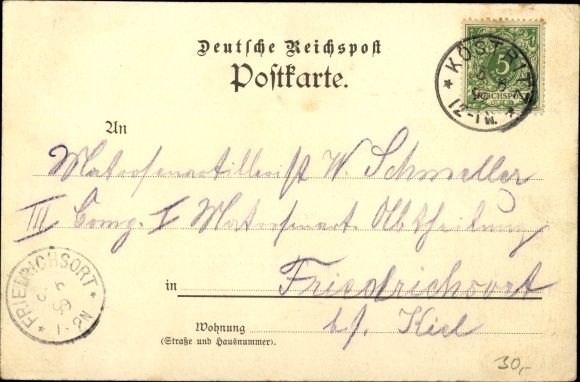 Deutsche Reichspost
Postkarte.
KÖSTRITZ
12-1N.
5
REICHSPOST
An
Matrosenartillerist W. Schmeller
III Comp. I Matrosenart. Abtheilung
in Friedrichsort
b/ Kiel
FRIEDRICHSORT
Wohnung
(Straße und Hausnummer).
30,-